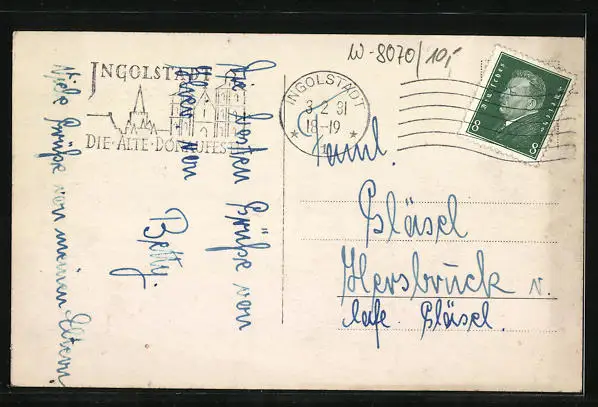 W-8070/10,-
INGOLSTADT
DIE·ALTE·DONAUFESTE
INGOLSTADT
3.2.31
18-19
1
8 8
Die besten Grüße von
von
Betty.
Viele Grüße von meinen Eltern.
Faml.
Gläsel
Hersbruck
Cafe. Gläsel.